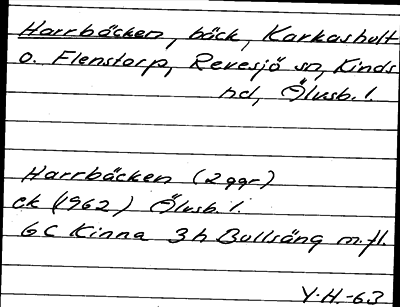 Harrbäcken, bäck, Karkashult
o. Flenstorp, Revesjö sn, Kinds
hd, Älvsb. l.
Harrbäcken (2 ggr)
ek (1962) Älvsb. l.
6C Kinna 3h Bullsäng m.fl.
Y.H.-63